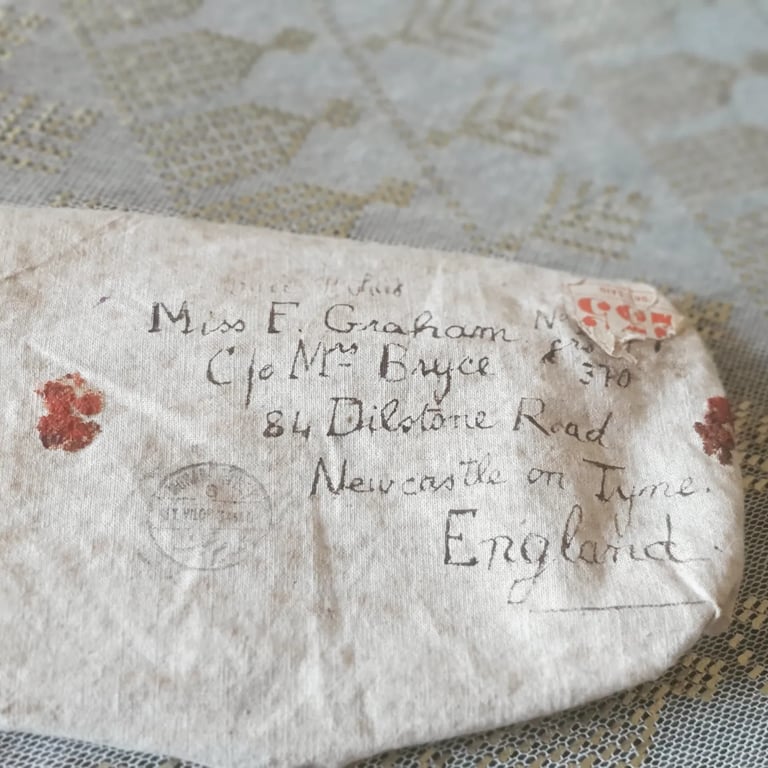 Miss F. Graham
C/o Mrs Bryce
84 Dilstone Road
Newcastle on Tyne.
England
No
grs
370